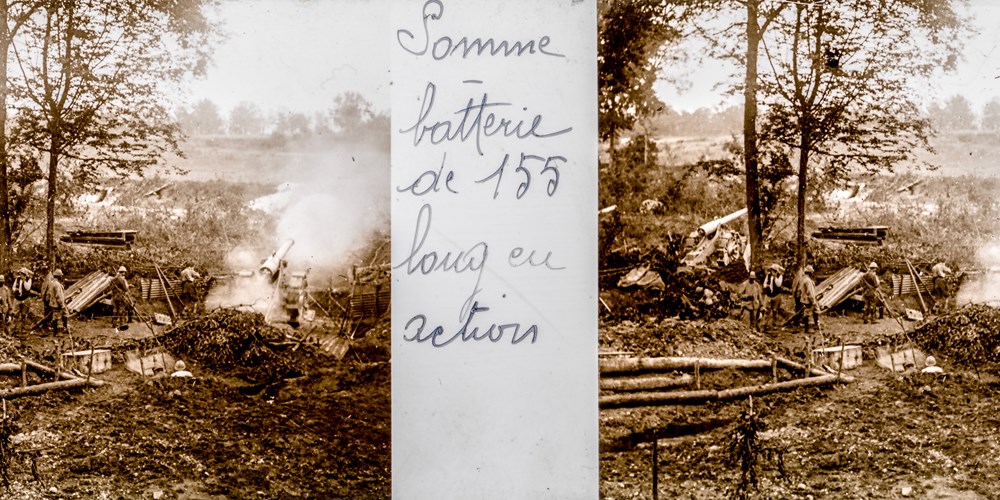 Somme
batterie
de 155
long en
action